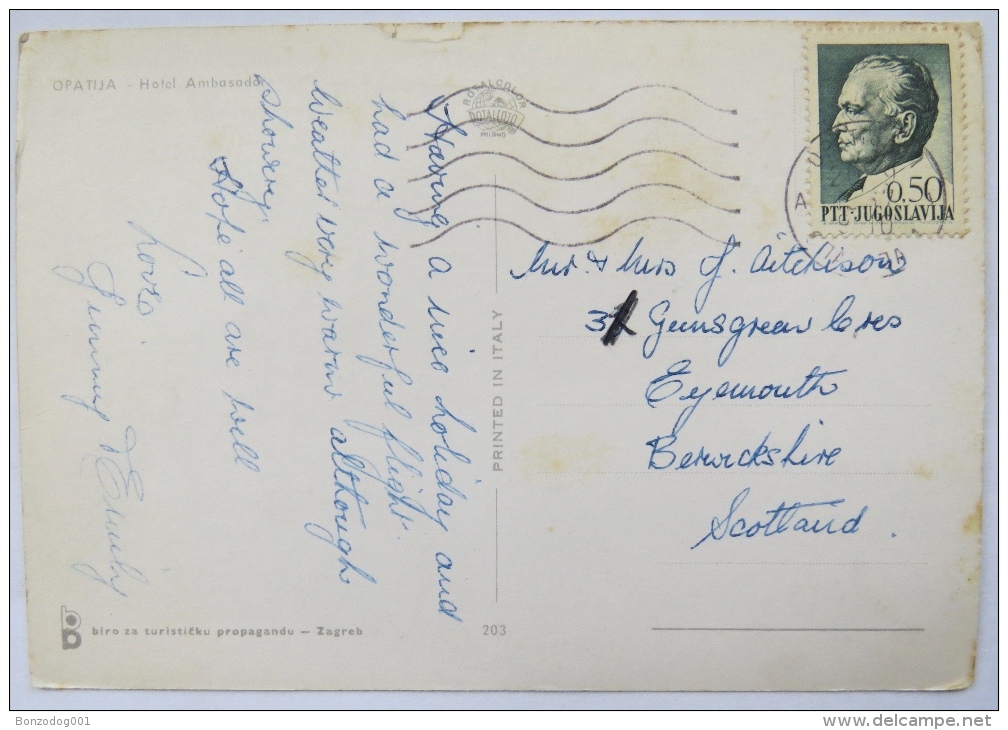 OPATIJA - Hotel Ambasador
ROTALCOLOR
ROTALFOTO
MILANO
0.50
PTT-JUGOSLAVIJA
Having a nice holiday and
had a wonderful flight.
Weather very warm although
showery.
Hope all are well
Love
Jimmy & Emily
PRINTED IN ITALY
Mr & Mrs J. Aitchison
3 Gunsgreen Cres
Eyemouth
Berwickshire
Scotland.
biro za turističku propagandu — Zagreb
203
Bonzodog001
www.delcampe.net